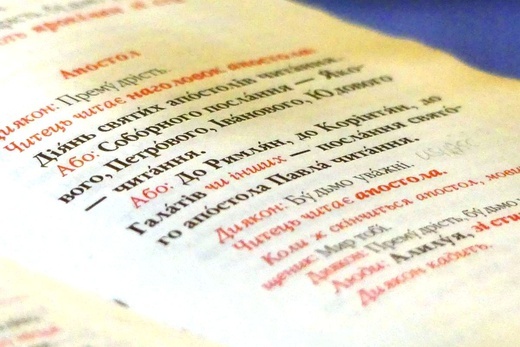 Апостол
Диякон: Прему́дрість.
Читець читає наголовок апостола:
Дія́нь святи́х апо́столів чита́ння.
Або: Собо́рного посла́ння — Я́ко-
вого, Петро́вого, Іва́нового, Ю́дового
— чита́ння.
Або: До Ри́млян, до Кори́нтян, до
Гала́тів чи інших — посла́ння свято́-
го апо́стола Павла́ чита́ння.
Диякон: Бу́дьмо ува́жні.
Читець читає апостола.
Коли ж скінчиться апостол,
щеник: Мир тобі.
Диякон: Прему́дрість бу́дьмо
Люди: Алилу́я, зі
Диякон кадить.